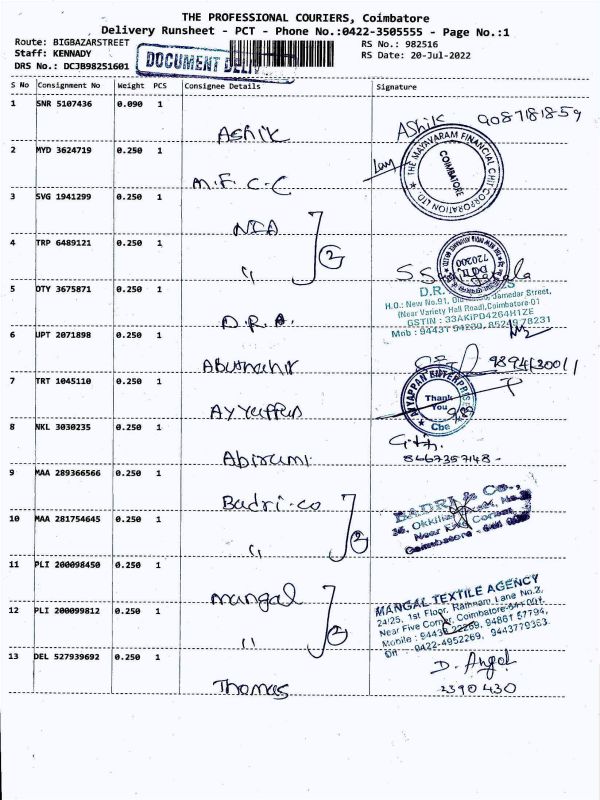 THE PROFESSIONAL COURIERS, Coimbatore
Delivery Runsheet - PCT - Phone No.:0422-3505555 - Page No.:1
Route: BIGBAZARSTREET RS No.: 982516
Staff: KENNADY RS Date: 20-Jul-2022
DRS No.: DCJB98251601
DOCUMENT
S No Consignment No Weight PCS Consignee Details Signature
1 SNR 5107436 0.090 1
Ashik Ashik 9087181859
2 MYD 3624719 0.250 1
M.F.C.C THE MAYAVARAM FINANCIAL CHIT CORPORATION LTD. COIMBATORE
3 SVG 1941299 0.250 1
NIA
4 TRP 6489121 0.250 1
" 2
720300
5 DTY 3675871 0.250 1
D.R.A. D.R.
H.O.: New No.91, Jamedar Street,
(Near Variety Hall Road), Coimbatore-01
GSTIN : 33AKIPD4264H1ZE
Mob : 78231
6 UPT 2071898 0.250 1
7 TRT 1045110 0.250 1
Ayyappan AYYAPPAN ENTERPRISES
Thank
You
Cbe
8 NKL 3030235 0.250 1
Abirami 8667357148
9 MAA 289366566 0.250 1
Badri-co BADRI & Co.,
10 MAA 281754645 0.250 1
" 2
36, Okkiliar
Near Five Corner
Coimbatore
11 PLI 200098450 0.250 1
mangal MANGAL TEXTILE AGENCY
24/25, 1st Floor, Rathnam Lane No.2,
12 PLI 200099812 0.250 1
" 2
Near Five Corner, Coimbatore
Mobile : 94867 57794,
Off : 0422-4952269, 9443779363
13 DEL 527939692 0.250 1
D. Angel
Thomas 2390430